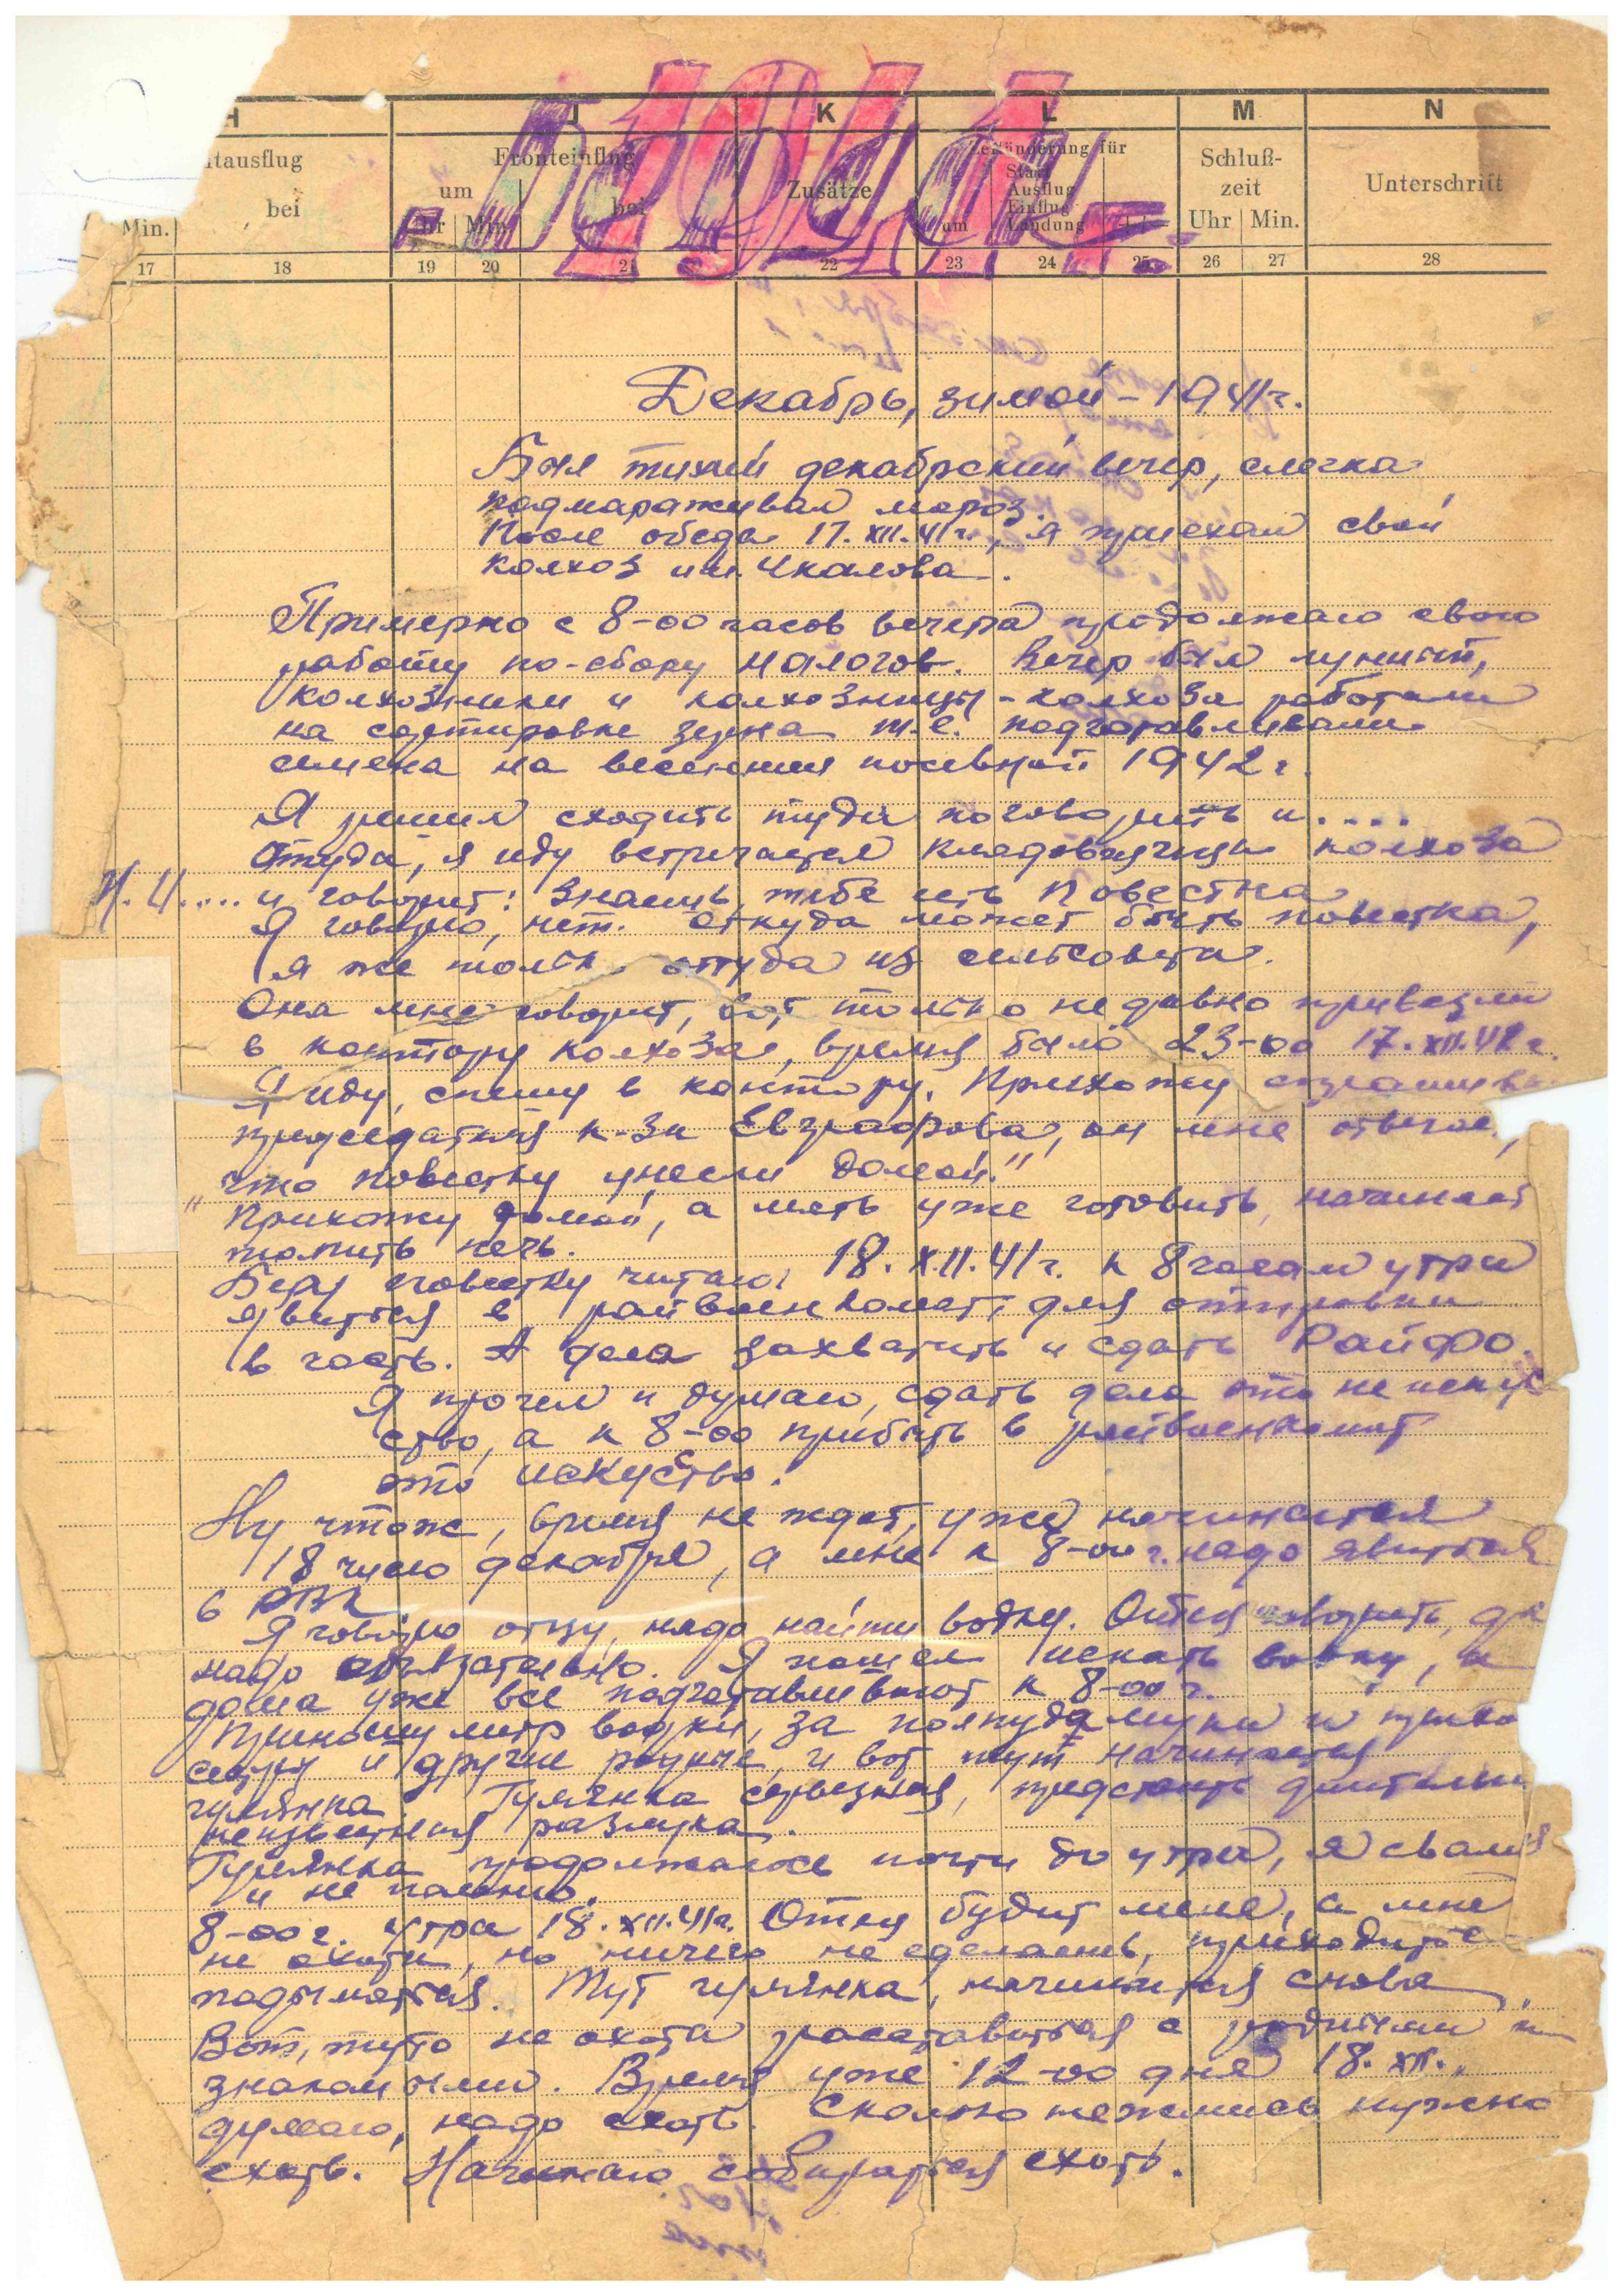 H J K L M N
itausflug Fronteinflug Zusätze Zeitänderung für Schluß- Unterschrift
bei um bei Start zeit
Ausflug
Einflug
Min. Uhr Min. um Landung Uhr Min.
17 18 19 20 21 22 23 24 25 26 27 28
1941
Декабрь, зимой - 1941 г.
Был тихий декабрьский вечер, слегка
подмараживал мороз.
После обеда 17.XII.41 г., я приехал свой
колхоз им. Чкалова.
Примерно с 8-00 часов вечера продолжаю свою
работу по-сбору налогов. Вечер был лунный,
колхозники и колхозницы - колхоза работали
на сортировке зерна т.е. подготавливали
семена на весенния посевной 1942 г.
Я решил сходить туда поговорить и....
Оттуда, я иду встречается кладовщица колхоза
Н.И.... и говорит: Знаешь, тебе есть повестка
Я говорю, нет. Откуда может быть повестка,
я же только оттуда из сельсовета.
Она мне говорит, вот только недавно привезли
в контору колхоза, время было 23-00 17.XII.41 г.
Я иду, спешу в контору. Прихожу спрашива
председателя к-за Евграфова, он мне отвечае,
что повестку унесли домой."
" Прихожу домой, а мать уже готовить, начинает
топить печь.
Беру повестку читаю: 18.XII.41 г. к 8 часам утра
явиться в райвоенкомат, для отправки
в часть. А дела захватить и сдать РайФО.
Я прочел и думаю, сдать дела это не искус
ство, а к 8-00 прибыть в райвоенкомат
это искуство.
Ну чтож, время не ждет, уже начинается
18 число декабря, а мне к 8-00 г. надо явиться
в РВК
Я говорю отцу, надо найти водку. Отец говорить, да
надо обязательно. Я пошел искать водку, а
дома уже все подготавливают к 8-00 г.
Приношу литр водки, за полпуда муки и
сестру и другие родные, и вот тут начинается
гулянка. Гулянка серьезная, предстоить
неизвестная разлука.
Гулянка продолжалось почти до утра, я свалил
и не помню.
8-00 г. утра 18.XII.41 г. Отец будит меня, а мне
не охота, но ничего не сделаешь, приходится
подыматься. Тут гулянка, начинается снова.
Вот, туто не охота расставаться с родными и
знакомыми. Время уже 12-00 дня 18.XII.,
думаю, надо ехать. Сколько нежились нужно
ехать. Начинаю собираться ехать.